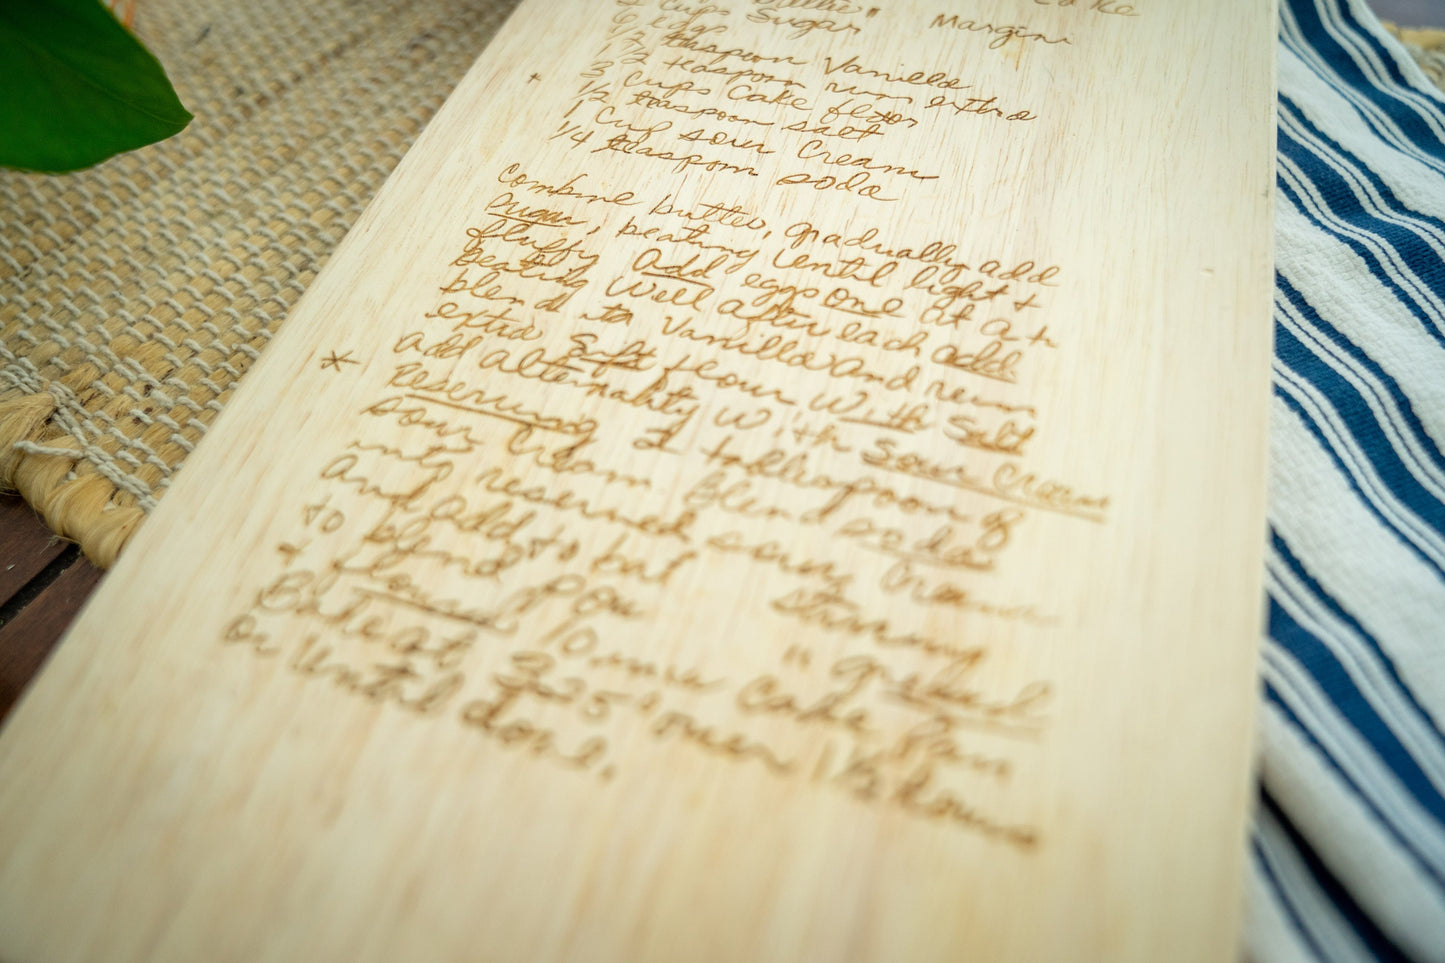 Cake
Cups Sugar Margin
6 egg
1/2 teaspoon Vanilla
1 1/2 teaspoon rum extra
+ 3 Cups Cake flour
1/2 teaspoon salt
1 Cup sour Cream
1/4 teaspoon soda
Combine butter, gradually add
sugar, beating until light +
fluffy Add eggs one at a
beating well after each add.
blend in Vanilla and rum
extra Sift flour With Salt
* add alternality With Sour Cream
Reserving 2 tablespoon of
sour Cream Blend soda
into reserved sour Cream
And add to but
to blend Pou
+ floured 10 inc " greased
Bake at 325° over 1 1/2 hours
or until done.